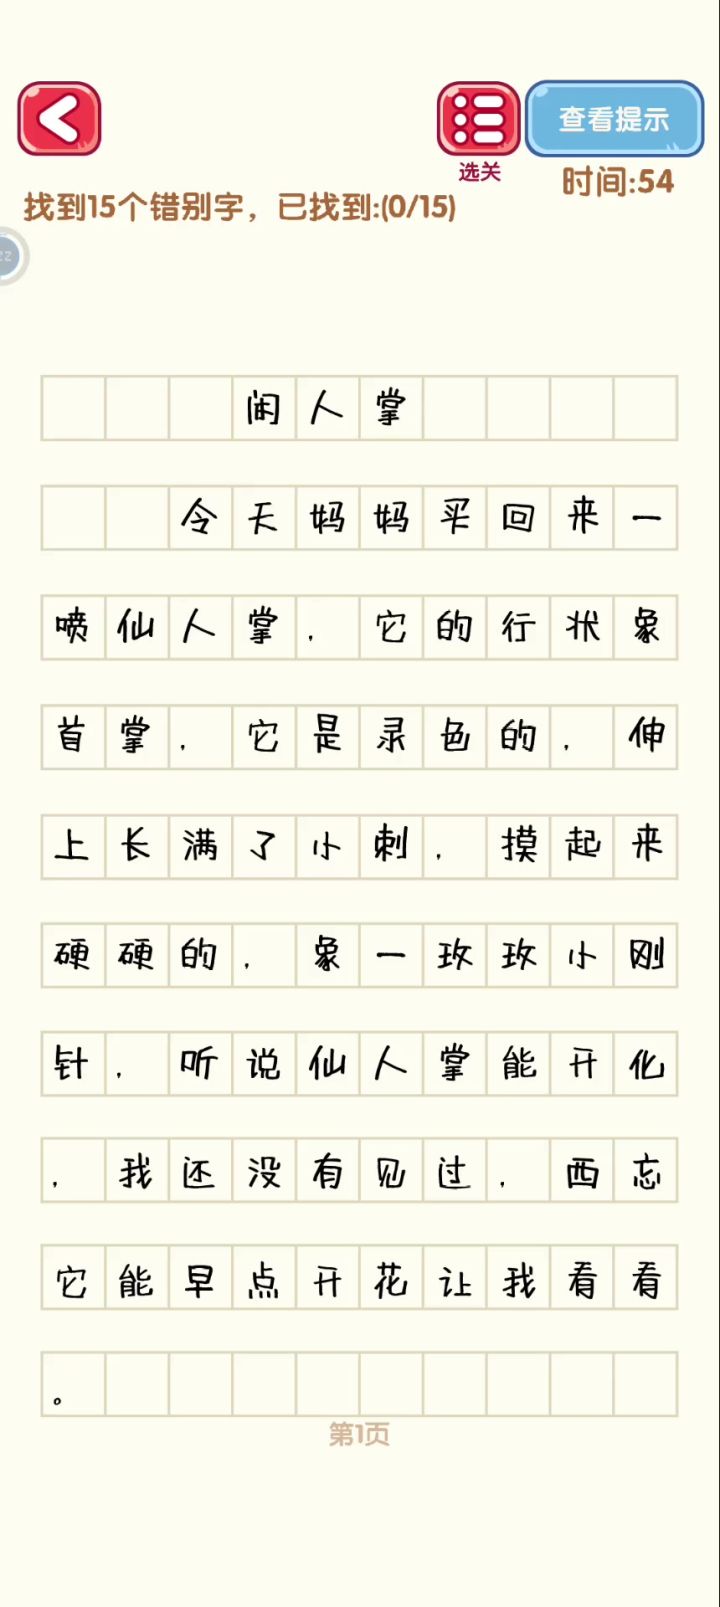 查看提示
选关
时间:54
找到15个错别字，已找到:(0/15)
zz
闲人掌
令天妈妈买回来一
喷仙人掌，它的行状象
首掌，它是录色的，伸
上长满了小刺，摸起来
硬硬的，象一玫玫小刚
针，听说仙人掌能开化
，我还没有见过，西忘
它能早点开花让我看看
。
第1页